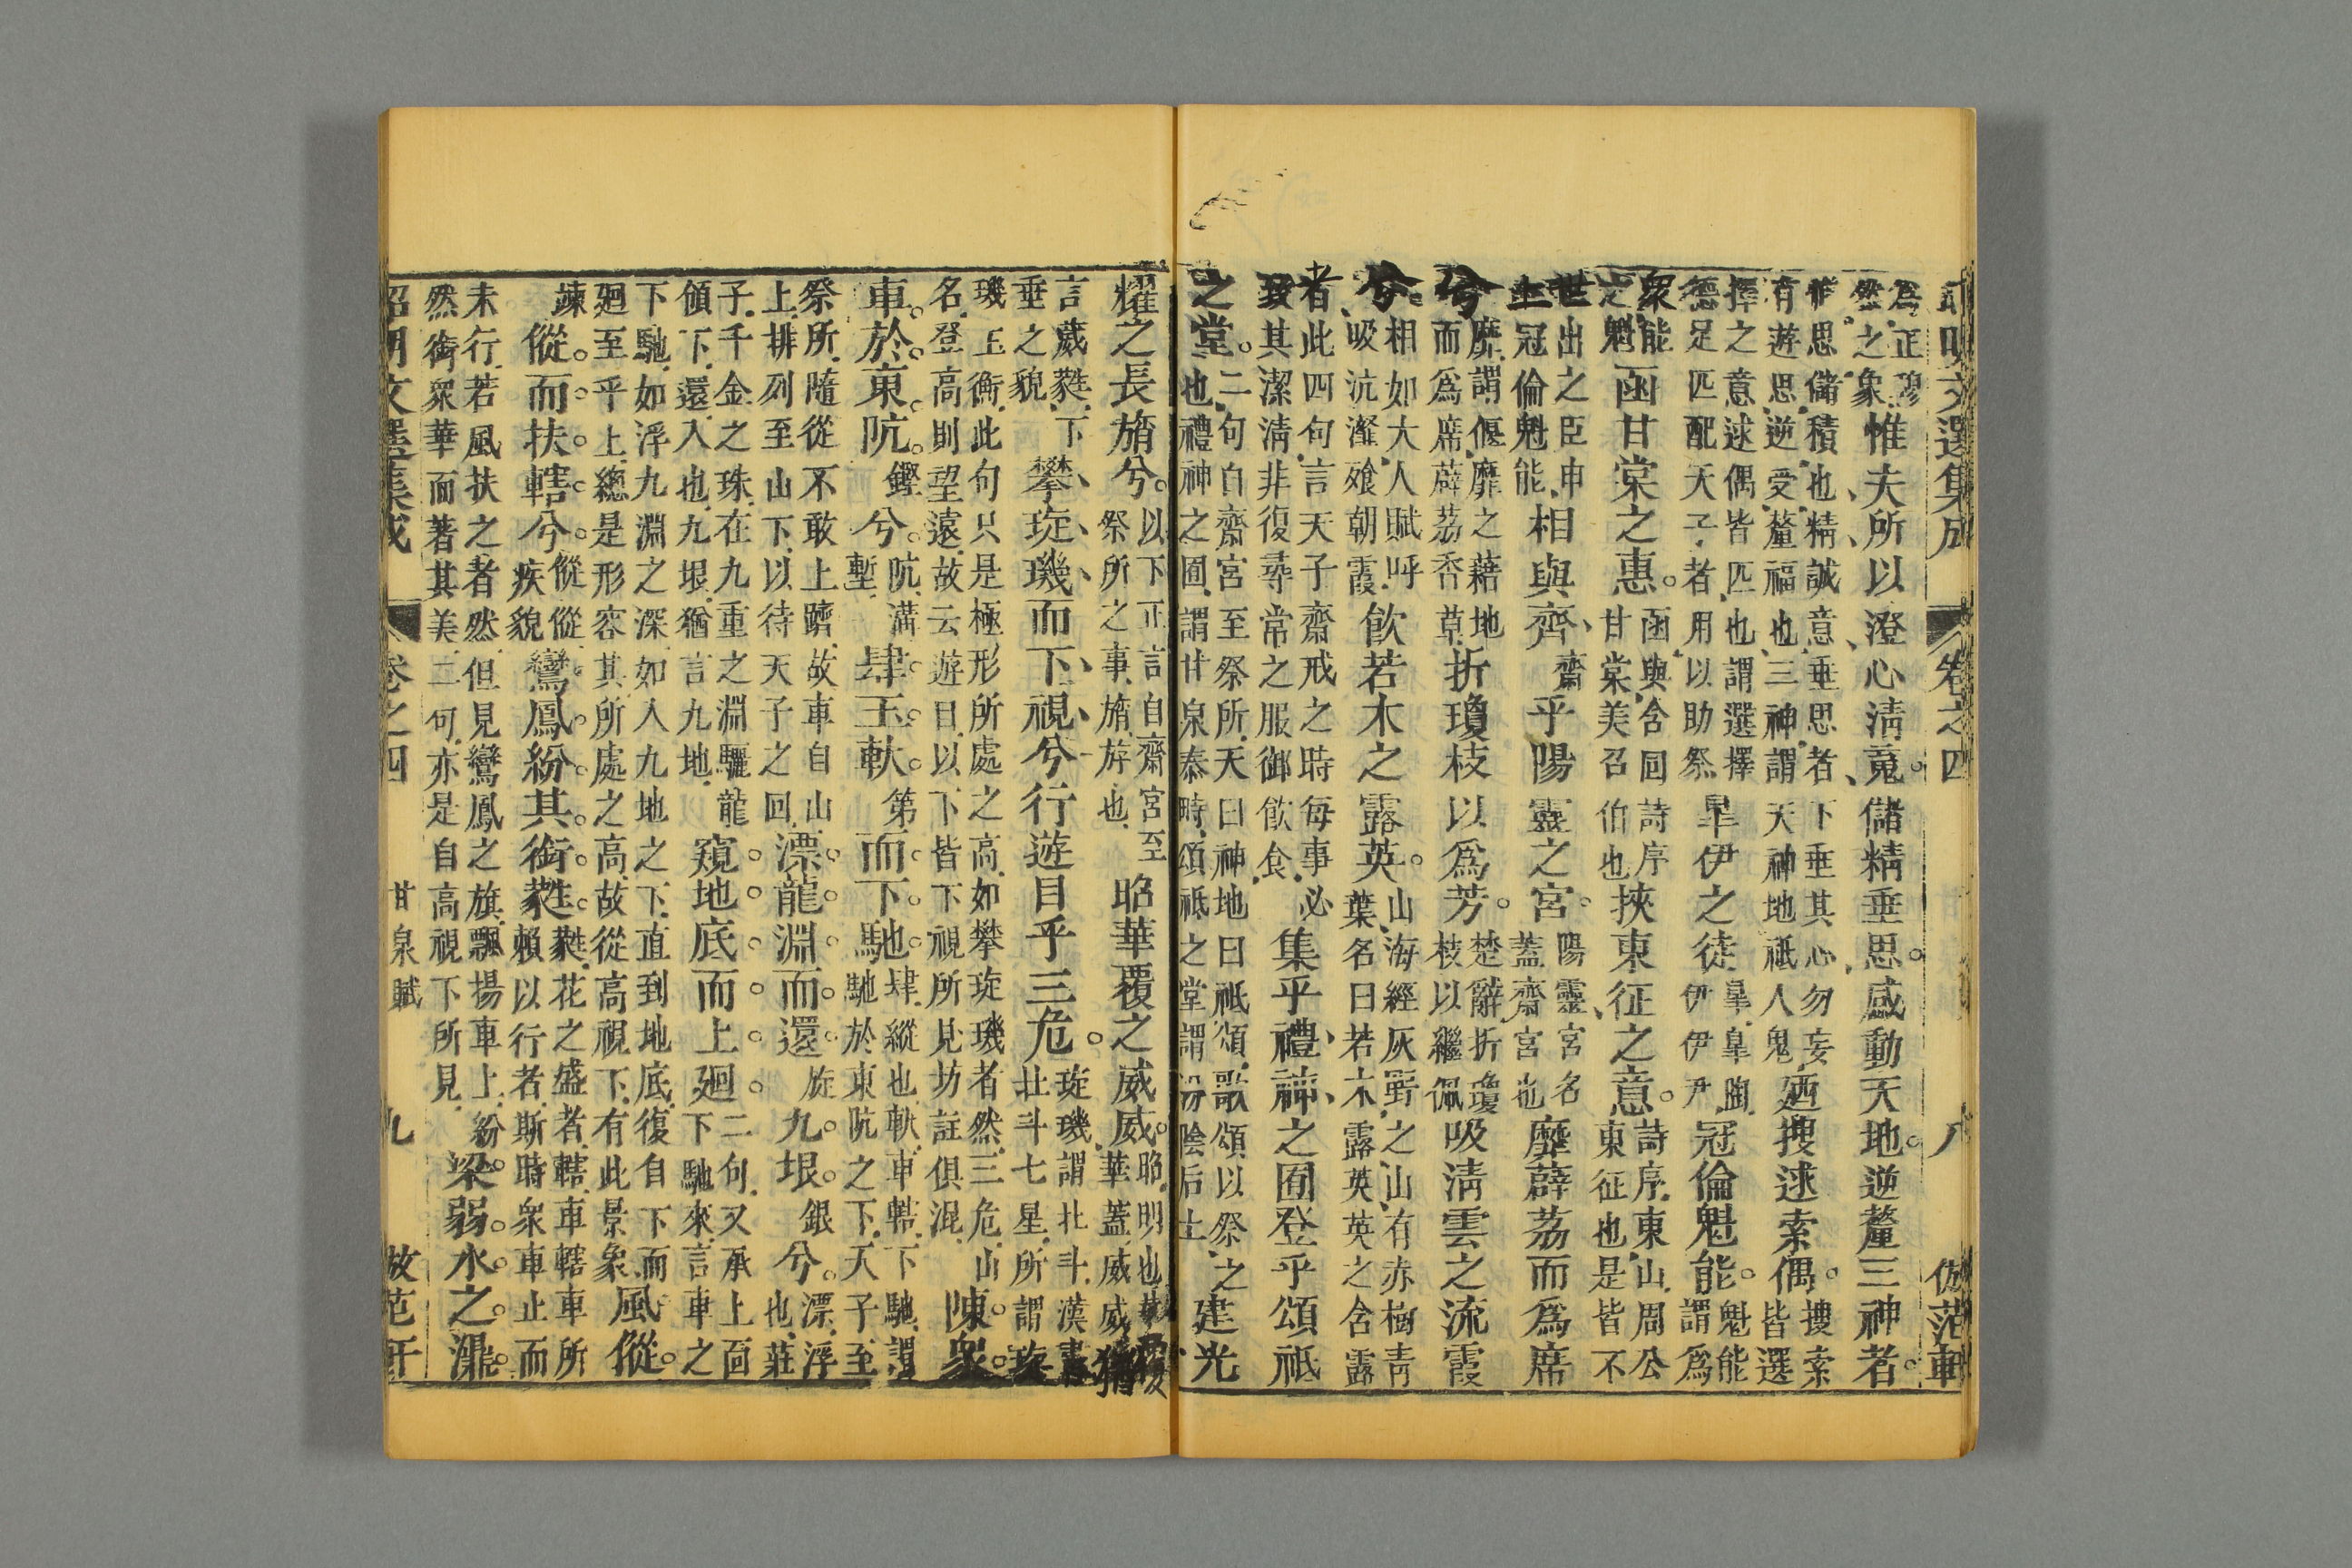 昭明文選集成 卷之四 八 倣范軒
為正殿
然之象惟夫所以澄心清䰟儲精垂思感動天地逆釐三神者
惟思儲積也精誠意垂思者下垂其心勿妄
有遊思逆受釐福也三神謂天神地祇人鬼廼搜逑索偶搜索
皆選
擇之意逑偶皆匹也謂選擇
德足匹配天子者用以助祭臯伊之徒臯臯陶
伊伊尹冠倫魁能魁能
謂為
眾能
之魁函甘棠之惠函與含同詩序
甘棠美召伯也挾東征之意詩序東山周公
東征也是皆不
世出之臣申
上冠倫魁能相與齊齋乎陽靈之宮陽靈宮名
蓋齋宮也靡薜荔而為席
兮靡謂偃靡之藉地
而為席薜荔香草折瓊枝以為芳楚辭折瓊
枝以繼佩吸清雲之流霞
兮相如大人賦呼
吸沆瀣飱朝霞飲若木之露英山海經灰野之山有赤樹青
葉名曰若木露英英之含露
者此四句言天子齋戒之時每事必
致其潔清非復尋常之服御飲食集乎禮神之囿登乎頌祇
之堂二句自齋宮至祭所天曰神地曰祇頌歌頌以祭之
也禮神之囿謂甘泉泰畤頌祇之堂謂汾陰后土建光
耀之長旓兮以下正言自齋宮至
祭所之事旓旂也昭華覆之威威昭明也華覆
華蓋威威猶
言葳蕤下
垂之貌攀琁璣而下視兮行遊目乎三危琁璣謂北斗漢書
北斗七星所謂琁
璣玉衡此句只是極形所處之高如攀琁璣者然三危山
名登高則望遠故云遊目以下皆下視所見坊註俱混陳眾
車於東阬鏗兮阬溝
塹肆玉軑第而下馳肆縱也軑車轄下馳謂
馳於東阬之下天子至
祭所隨從不敢上躋故車自山
上排列至山下以待天子之回漂龍淵而還旋九垠銀兮漂浮
也莊
子千金之珠在九重之淵驪龍
頷下還入也九垠猶言九地窺地底而上廻二句又承上面
下馳來言車之
下馳如浮九淵之深如入九地之下直到地底復自下而
廻至乎上總是形容其所處之高故從高視下有此景象風㣝
竦㣝而扶轄兮㣝㣝
疾貌鸞鳳紛其銜蕤蕤花之盛者轄車轄車所
賴以行者斯時眾車止而
未行若風扶之者然但見鸞鳳之旗飄揚車上紛
然銜眾華而著其美二句亦是自高視下所見梁弱水之濎
昭明文選集成 卷之四 甘泉賦 九 倣范軒